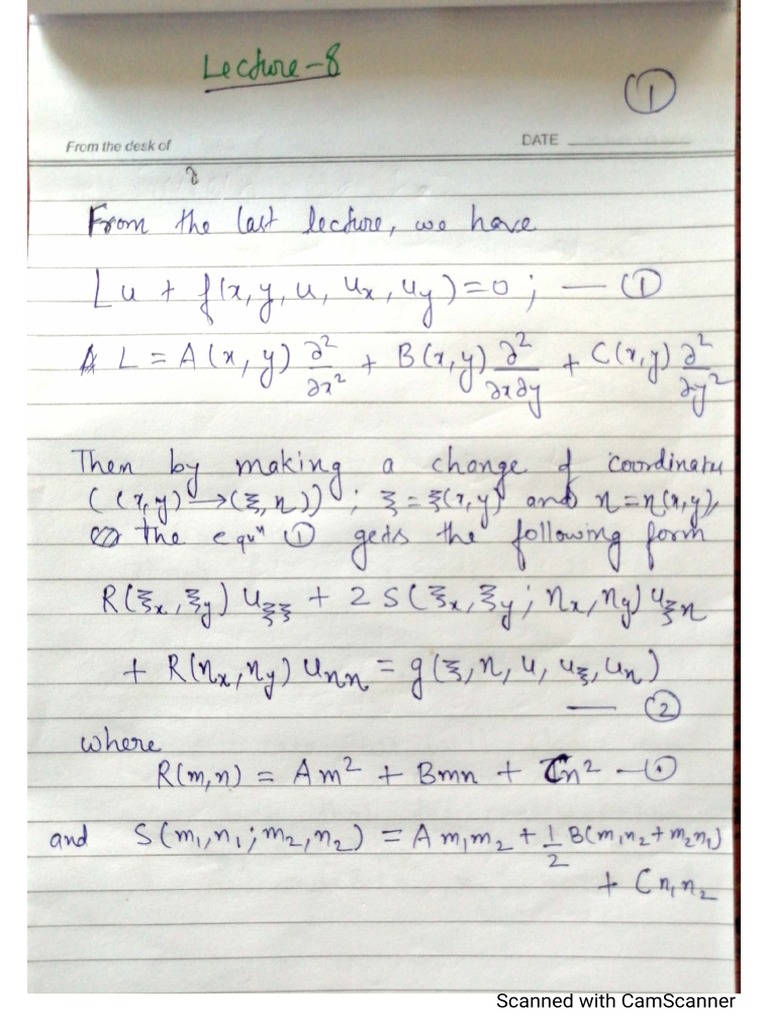 Lecture-8
①
From the desk of
DATE
From the last lecture, we have
Lu + f(x, y, u, u_x, u_y) = 0 ; — ①
L = A(x, y) ∂²/∂x² + B(x,y) ∂²/∂x∂y + C(x,y) ∂²/∂y²
Then by making a change of coordinates
((x,y) → (ξ,η)) ; ξ = ξ(x,y) and η = η(x,y),
the equⁿ ① gets the following form
R(ξ_x, ξ_y) u_ξξ + 2 S(ξ_x, ξ_y ; η_x, η_y) u_ξη
+ R(η_x, η_y) u_ηη = g(ξ, η, u, u_ξ, u_η)
— ②
where
R(m,n) = Am² + Bmn + Cn² —
and S(m₁,n₁ ; m₂,n₂) = A m₁m₂ + 1/2 B(m₁n₂ + m₂n₁)
+ C n₁n₂
Scanned with CamScanner